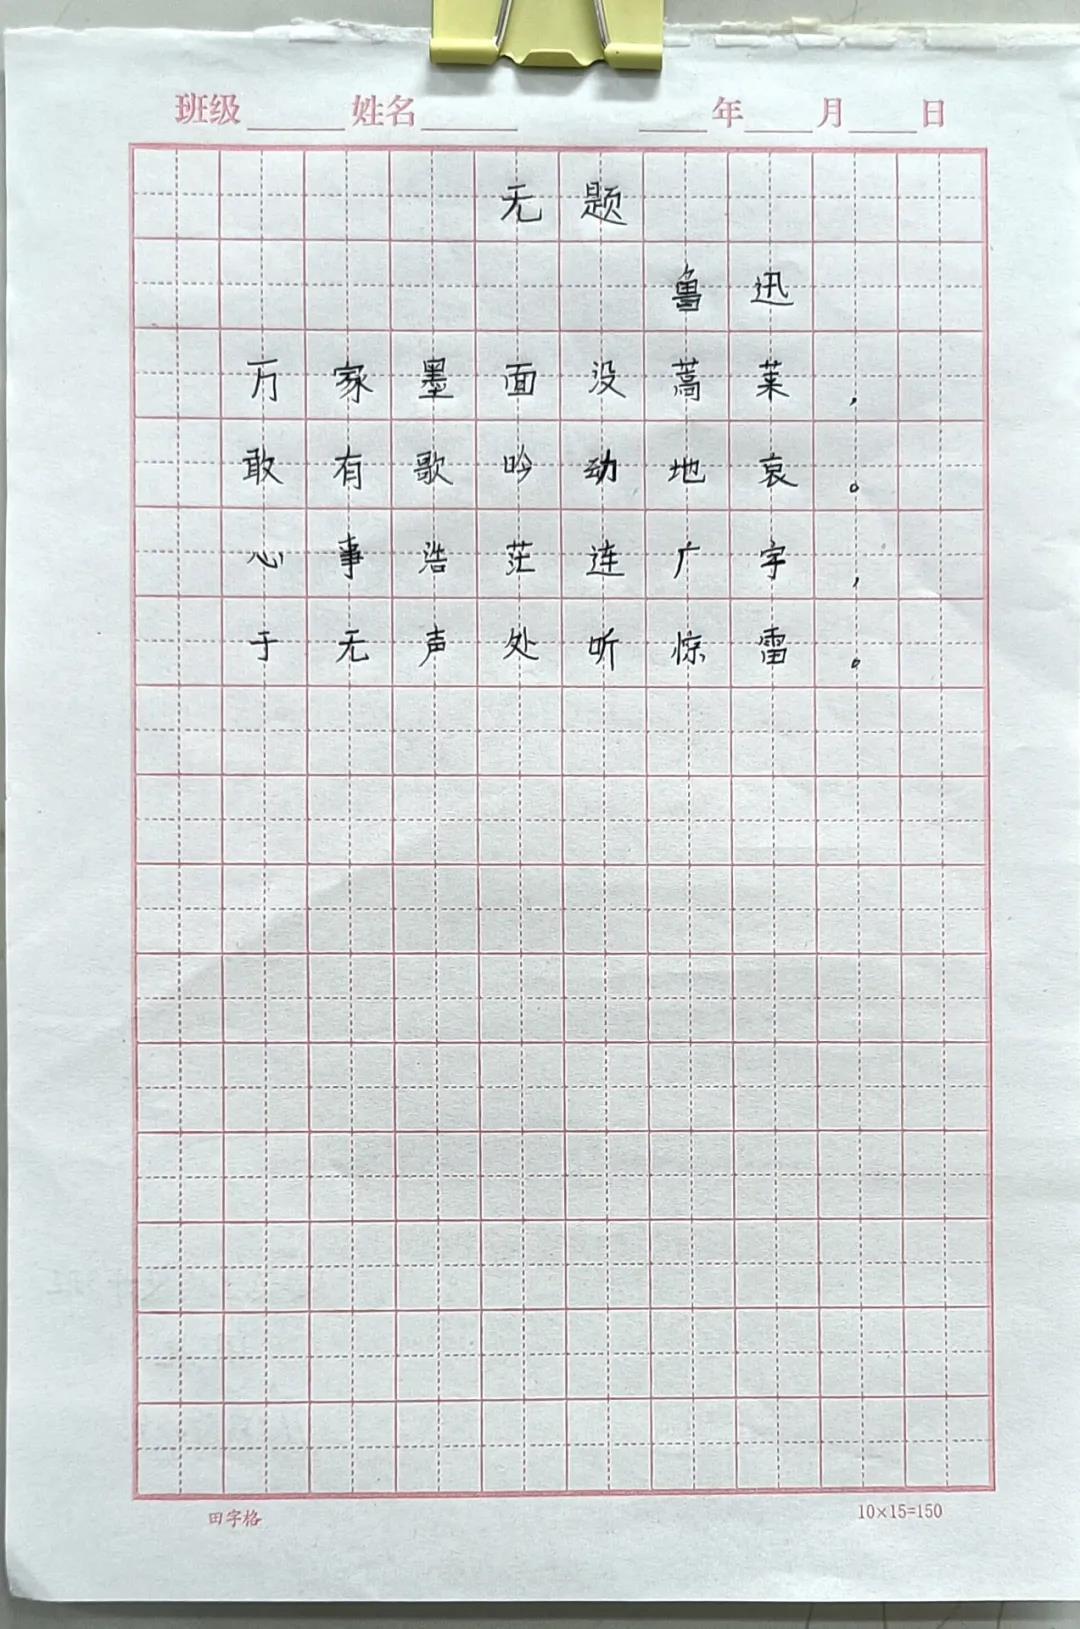 班级______姓名______ ____年____月____日
无题
鲁迅
万家墨面没蒿莱，
敢有歌吟动地哀。
心事浩茫连广宇，
于无声处听惊雷。
田字格 10×15=150